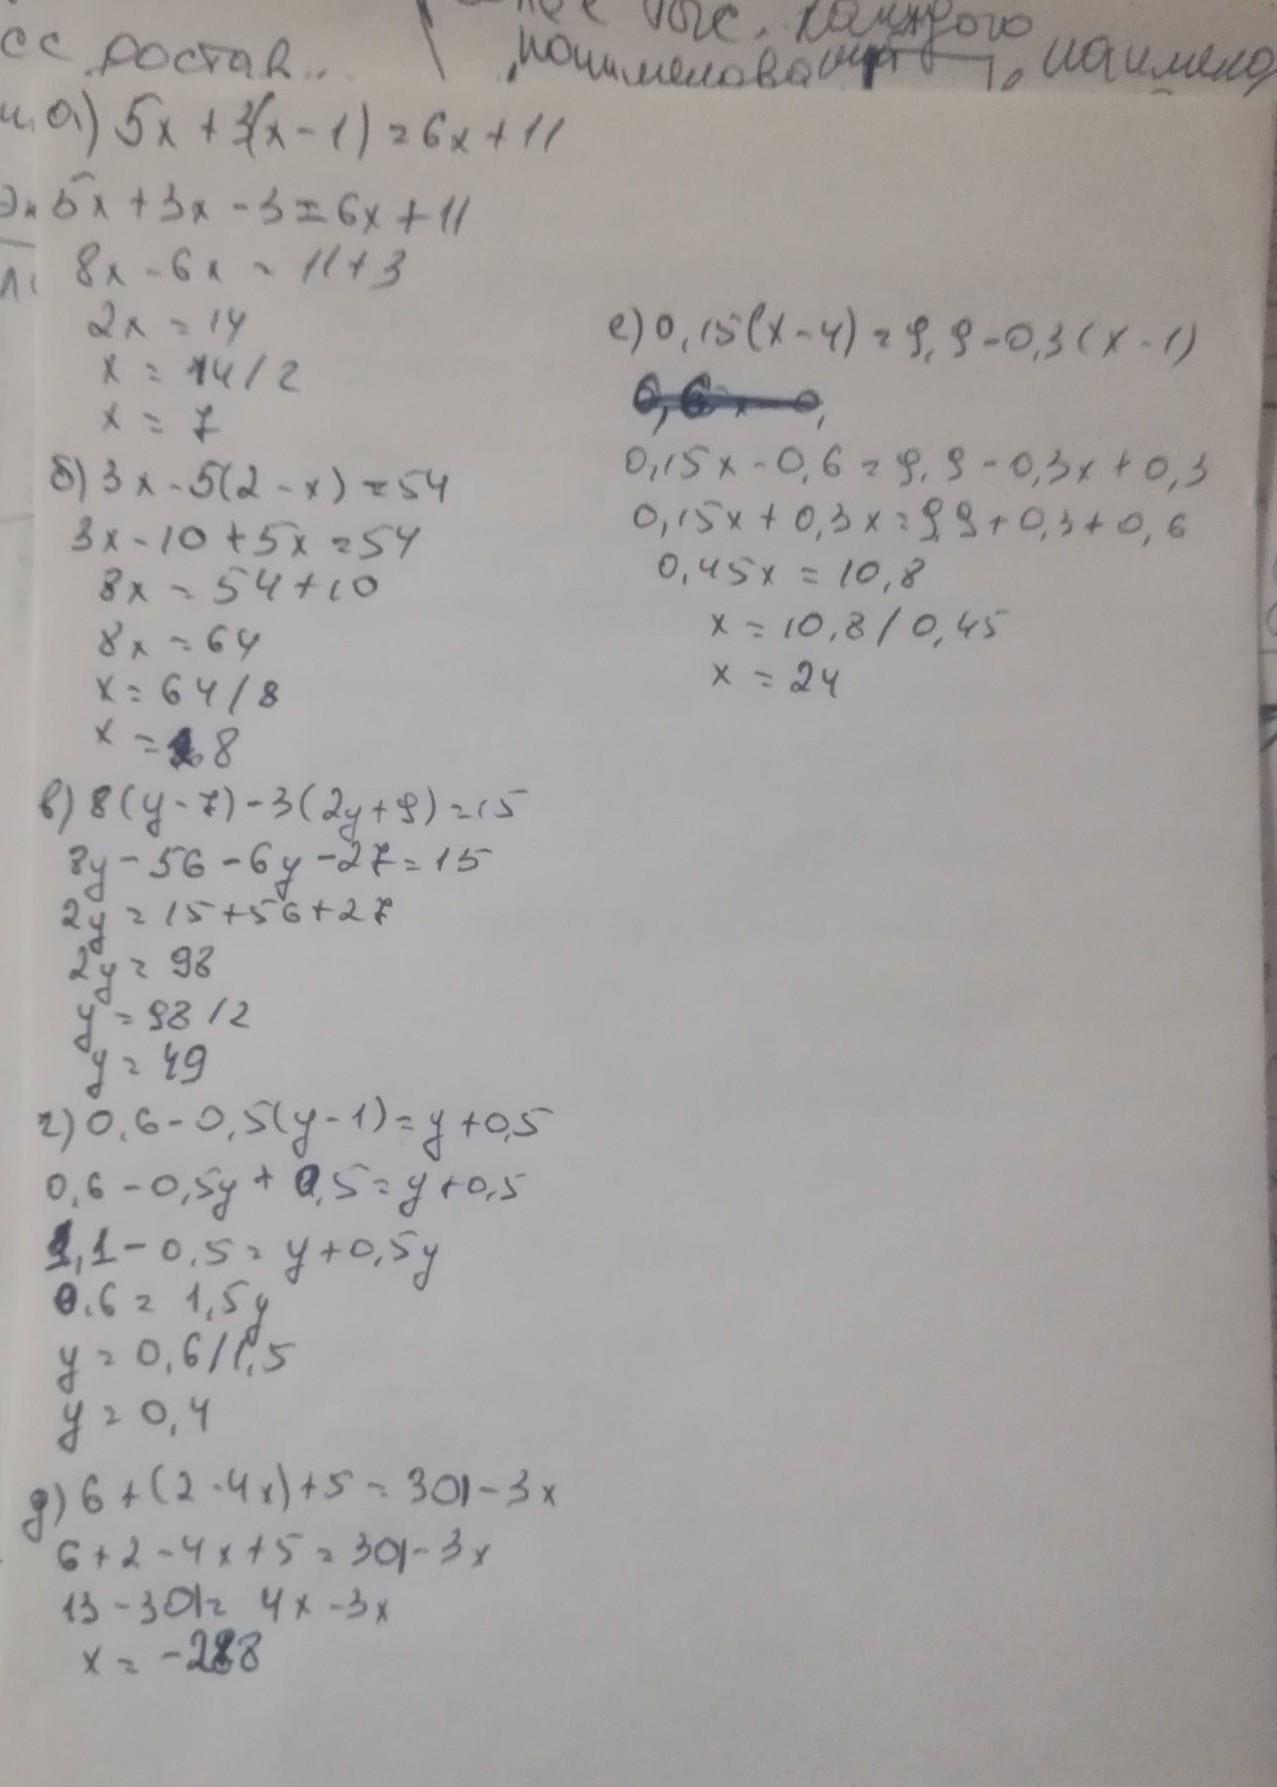 сс достав..
тыс. каждого
наименова
, наимено
а) 5x + 3(x - 1) = 6x + 11
5x + 3x - 3 = 6x + 11
8x - 6x = 11 + 3
2x = 14
x = 14 / 2
x = 7
б) 3x - 5(2 - x) = 54
3x - 10 + 5x = 54
8x = 54 + 10
8x = 64
x = 64 / 8
x = 8
в) 8(y - 7) - 3(2y + 9) = 15
8y - 56 - 6y - 27 = 15
2y = 15 + 56 + 27
2y = 98
y = 98 / 2
y = 49
г) 0,6 - 0,5(y - 1) = y + 0,5
0,6 - 0,5y + 0,5 = y + 0,5
1,1 - 0,5 = y + 0,5y
0.6 = 1,5y
y = 0,6 / 1,5
y = 0,4
д) 6 + (2 - 4x) + 5 = 301 - 3x
6 + 2 - 4x + 5 = 301 - 3x
13 - 301 = 4x - 3x
x = -288
е) 0,15(x - 4) = 9,9 - 0,3(x - 1)
0,15x - 0,6 = 9,9 - 0,3x + 0,3
0,15x + 0,3x = 9,9 + 0,3 + 0,6
0,45x = 10,8
x = 10,8 / 0,45
x = 24